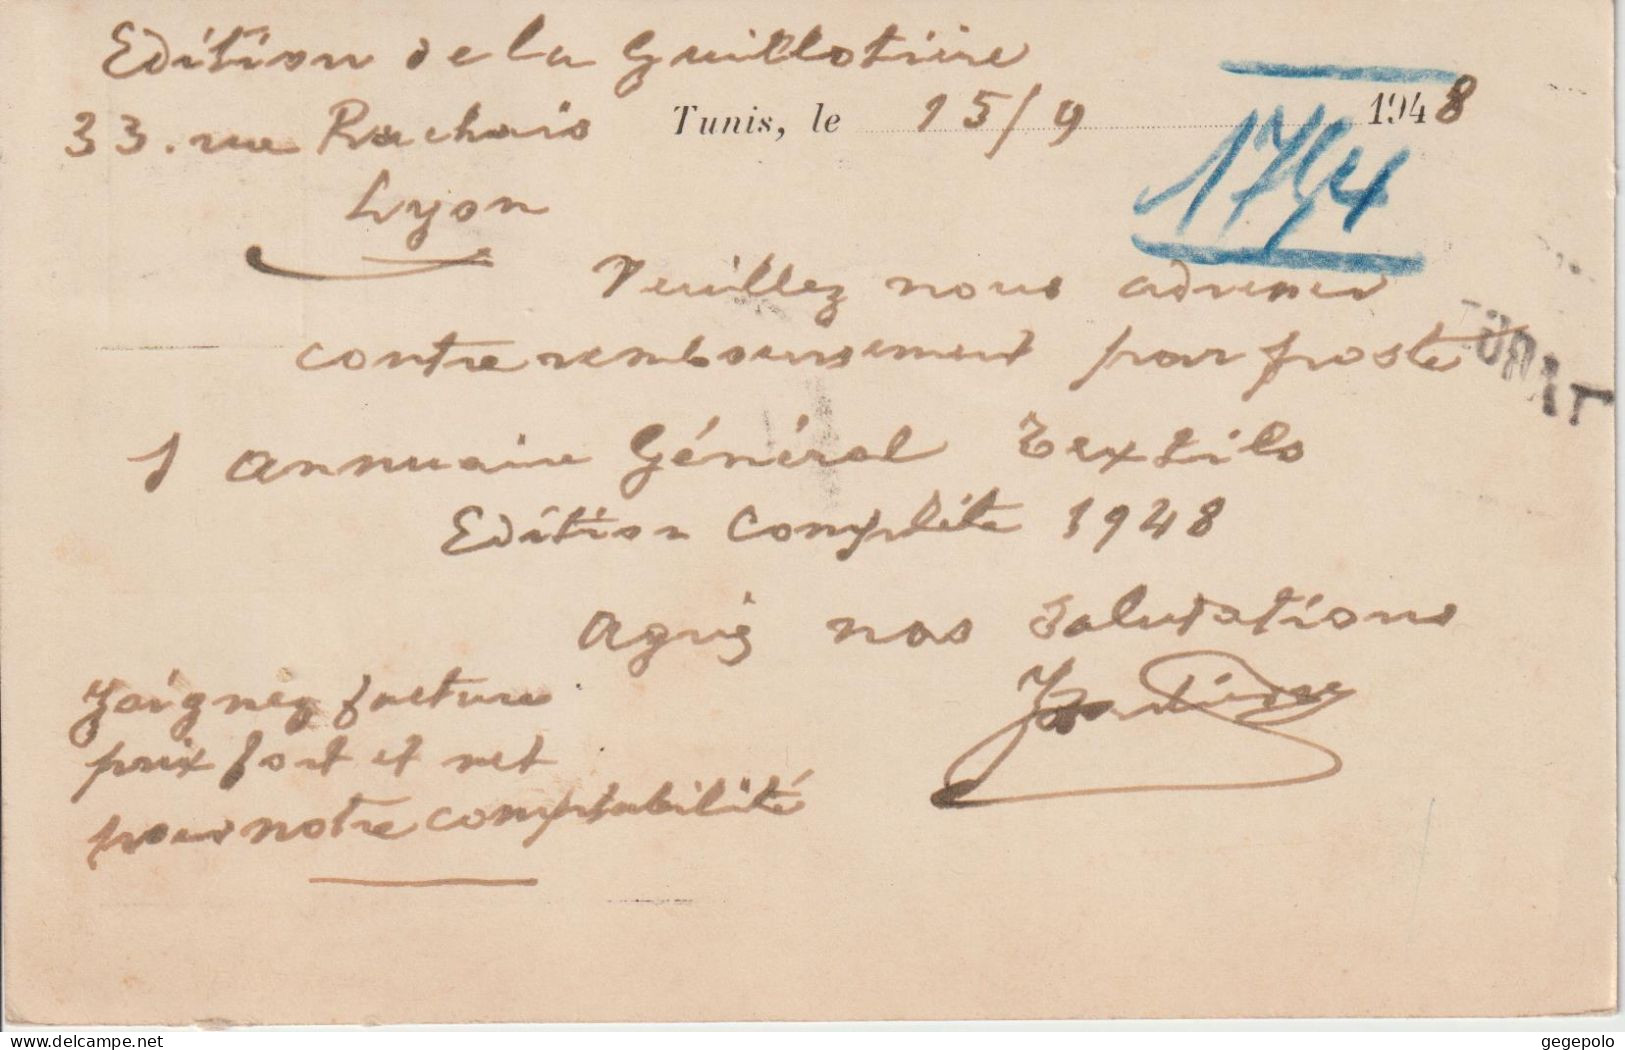 Edition de la Guillotière
33. rue Rachais Tunis, le 15/9 1948
1794
Lyon
Veuillez nous adresser
contre remboursement par poste
1 Annuaire Général Textils
Edition Complète 1948
Agrez nos Salutations
Joignez facture
prix fort et net
pour notre comptabilité
delcampe.net
gegepolo